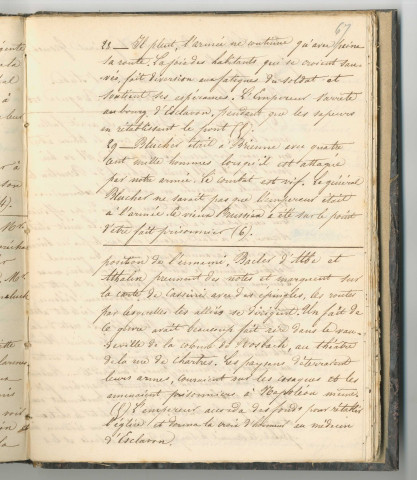 67
28 — Il pleut, l'armée ne continue qu'avec peine
sa route. La joie des habitants qui se croient sau-
vés, fait diversion aux fatigues du soldat et
soutient ses espérances. L'Empereur s'arrête
au bourg d'Esclaron, pendant que les sapeurs
en rétablissent le pont (5).
29 — Blucher était à Brienne avec quatre
vingt mille hommes lorsqu'il est attaqué
par notre armée. Le combat est vif. Le général
Blucher ne savait pas que l'empereur était
à l'armée le vieux Prussien a été sur le point
d'être fait prisonnier (6).
position de l'ennemi. Bacler d'Albe et
Athalin prennent des notes et marquent sur
la carte de Cassini avec des épingles, les routes
par lesquelles les alliés se dirigent. Un fait de
ce genre avait beaucoup fait rire dans le vau-
deville de la de Rosbach, au théâtre
de la rue de Chartres. Les paysans déterraient
leurs armes, couraient sur les cosaques et les
amenaient prisonniers à Napoléon même
(5) L'empereur accorda des fonds pour rétablir
l'église et donna la croix d'honneur au médecin
d'Esclaron.